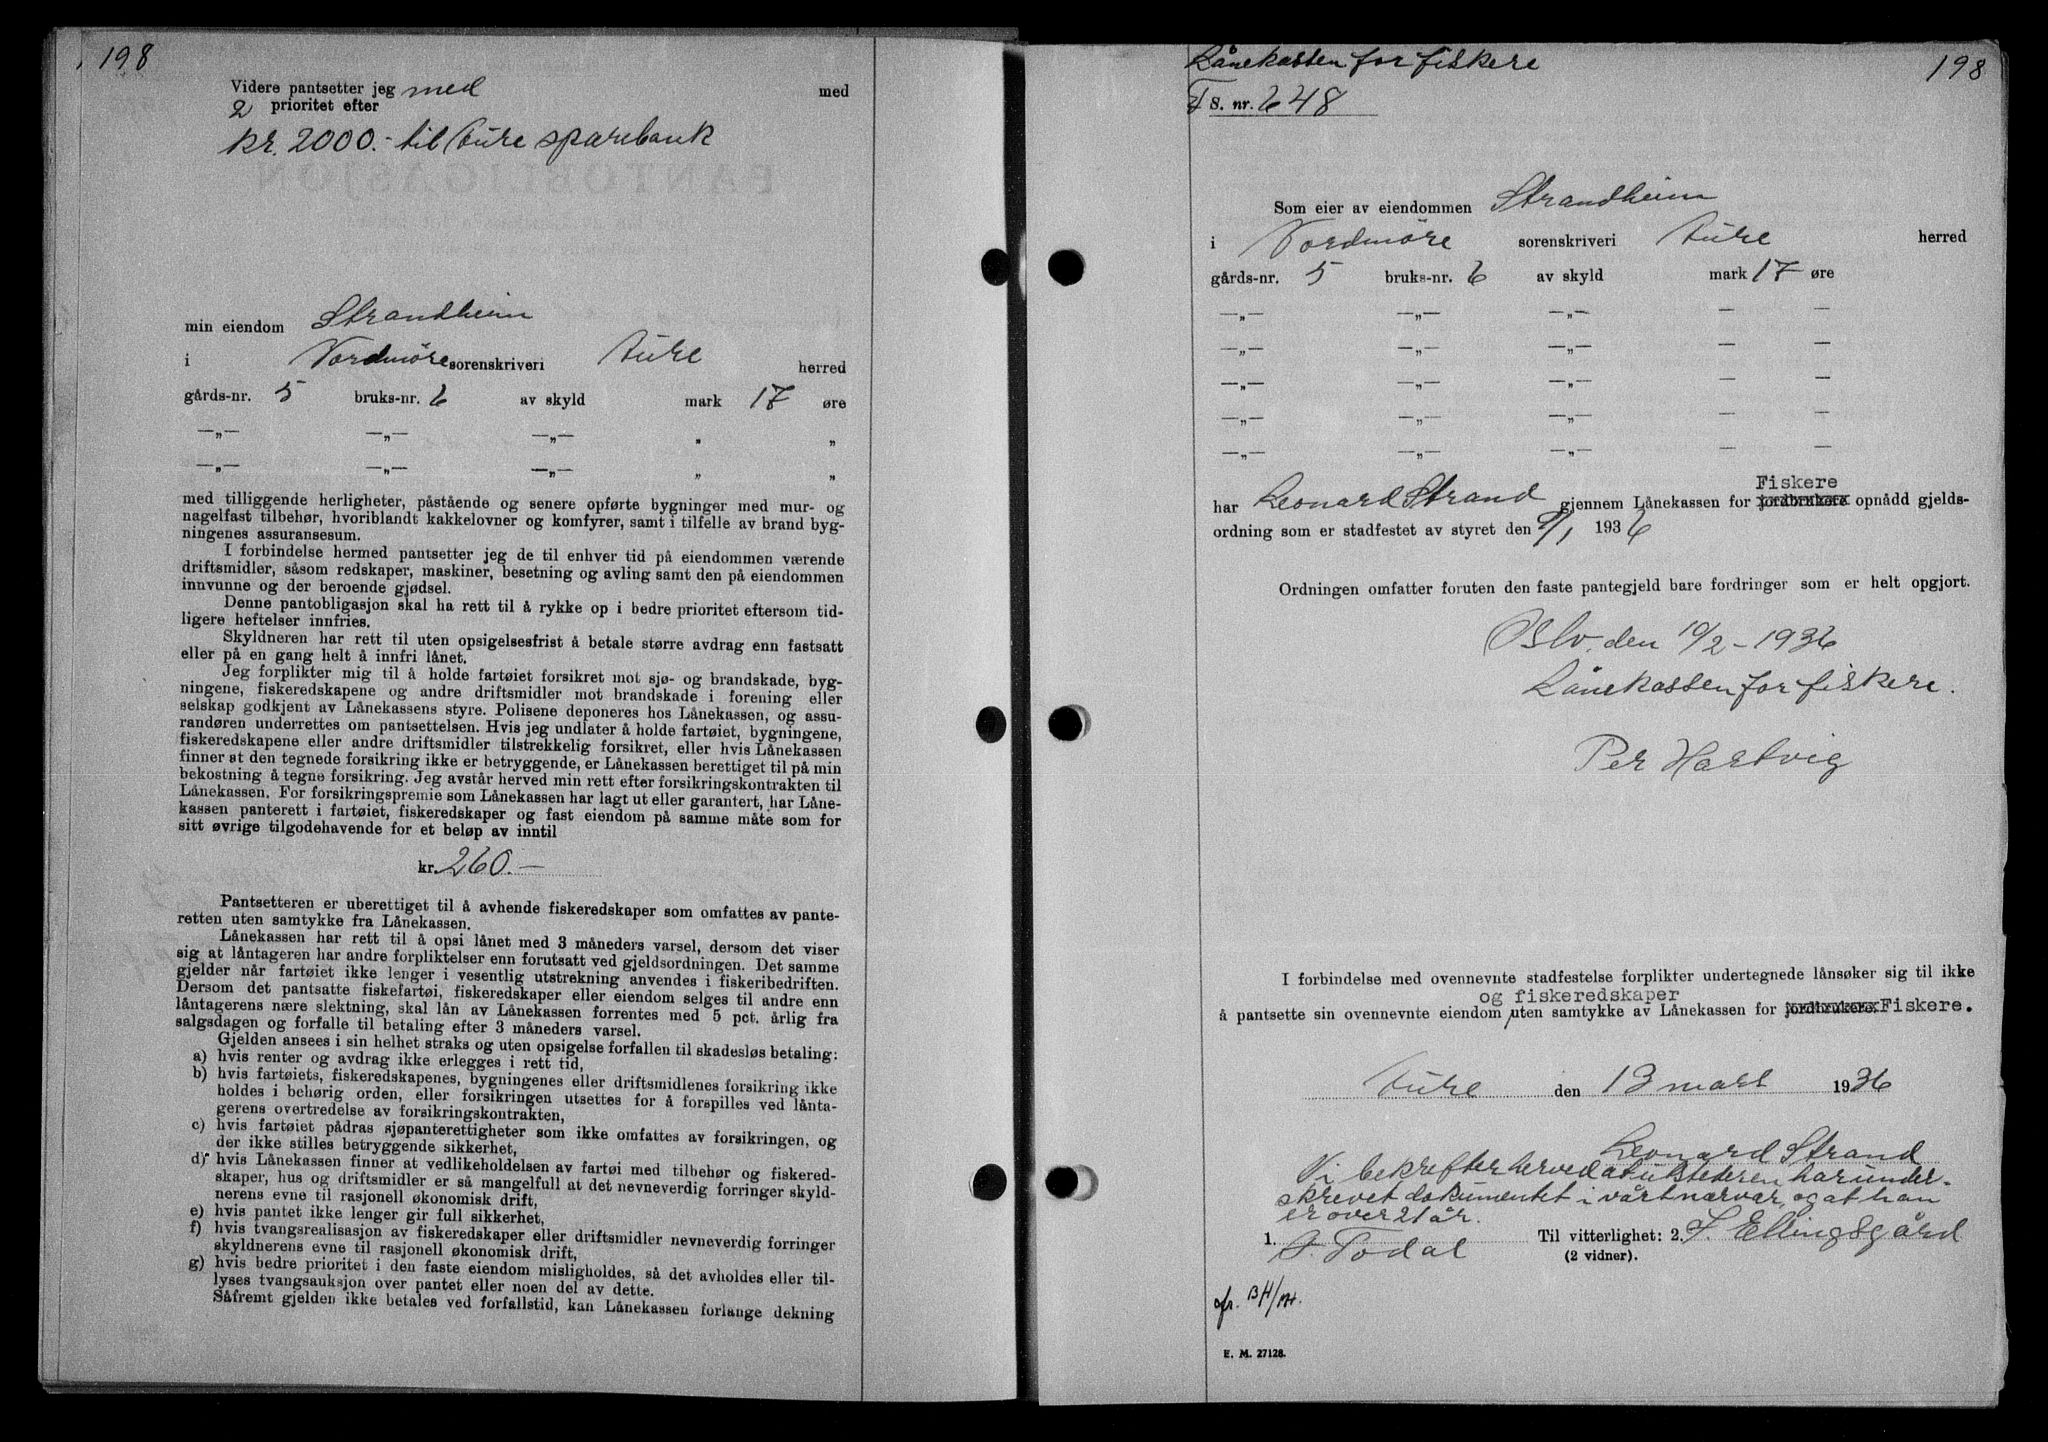 198
Videre pantsetter jeg med med
2 prioritet efter
kr. 2000.- til Aure sparebank
min eiendom Strandheim
i Nordmöre sorenskriveri Aure herred
gårds-nr. 5 bruks-nr. 6 av skyld mark 17 øre
—„— —„— —„— „ „
—„— —„— —„— „ „
med tilliggende herligheter, påstående og senere opførte bygninger med mur- og
nagelfast tilbehør, hvoriblandt kakkelovner og komfyrer, samt i tilfelle av brand byg-
ningenes assuransesum.
I forbindelse hermed pantsetter jeg de til enhver tid på eiendommen værende
driftsmidler, såsom redskaper, maskiner, besetning og avling samt den på eiendommen
innvunne og der beroende gjødsel.
Denne pantobligasjon skal ha rett til å rykke op i bedre prioritet eftersom tid-
ligere heftelser innfries.
Skyldneren har rett til uten opsigelsesfrist å betale større avdrag enn fastsatt
eller på en gang helt å innfri lånet.
Jeg forplikter mig til å holde fartøiet forsikret mot sjø- og brandskade, byg-
ningene, fiskeredskapene og andre driftsmidler mot brandskade i forening eller
selskap godkjent av Lånekassens styre. Polisene deponeres hos Lånekassen, og assu-
randøren underrettes om pantsettelsen. Hvis jeg undlater å holde fartøiet, bygningene,
fiskeredskapene eller andre driftsmidler tilstrekkelig forsikret, eller hvis Lånekassen
finner at den tegnede forsikring ikke er betryggende, er Lånekassen berettiget til på min
bekostning å tegne forsikring. Jeg avstår herved min rett efter forsikringskontrakten til
Lånekassen. For forsikringspremie som Lånekassen har lagt ut eller garantert, har Låne-
kassen panterett i fartøiet, fiskeredskaper og fast eiendom på samme måte som for
sitt øvrige tilgodehavende for et beløp av inntil
kr. 260.-
Pantsetteren er uberettiget til å avhende fiskeredskaper som omfattes av pante-
retten uten samtykke fra Lånekassen.
Lånekassen har rett til å opsi lånet med 3 måneders varsel, dersom det viser
sig at låntageren har andre forpliktelser enn forutsatt ved gjeldsordningen. Det samme
gjelder når fartøiet ikke lenger i vesentlig utstrekning anvendes i fiskeribedriften.
Dersom det pantsatte fiskefartøi, fiskeredskaper eller eiendom selges til andre enn
låntagerens nære slektning, skal lån av Lånekassen forrentes med 5 pct. årlig fra
salgsdagen og forfalle til betaling efter 3 måneders varsel.
Gjelden ansees i sin helhet straks og uten opsigelse forfallen til skadesløs betaling:
a) hvis renter og avdrag ikke erlegges i rett tid,
b) hvis fartøiets, fiskeredskapenes, bygningenes eller driftsmidlenes forsikring ikke
holdes i behørig orden, eller forsikringen utsettes for å forspilles ved lånta-
gerens overtredelse av forsikringskontrakten,
c) hvis fartøiet pådras sjøpanterettigheter som ikke omfattes av forsikringen, og
der ikke stilles betryggende sikkerhet,
d) hvis Lånekassen finner at vedlikeholdelsen av fartøi med tilbehør og fiskered-
skaper, hus og driftsmidler er så mangelfull at det nevneverdig forringer skyld-
nerens evne til rasjonell økonomisk drift,
e) hvis pantet ikke lenger gir full sikkerhet,
f) hvis tvangsrealisasjon av fiskeredskaper eller driftsmidler nevneverdig forringer
skyldnerens evne til rasjonell økonomisk drift,
g) hvis bedre prioritet i den faste eiendom misligholdes, så det avholdes eller til-
lyses tvangsauksjon over pantet eller noen del av dette.
Såfremt gjelden ikke betales ved forfallstid, kan Lånekassen forlange dekning
Lånekassen for fiskere 198
F S. nr. 648
Som eier av eiendommen Strandheim
i Nordmöre sorenskriveri Aure herred
gårds-nr. 5 bruks-nr. 6 av skyld mark 17 øre
—„— —„— —„— — —
—„— —„— —„— — —
—„— —„— —„— — —
—„— —„— —„— — —
—„— —„— —„— — —
Fiskere
har Leonard Strand gjennem Lånekassen for jordbrukere opnådd gjelds-
ordning som er stadfestet av styret den 9/1 1936
Ordningen omfatter foruten den faste pantegjeld bare fordringer som er helt opgjort.
Oslo, den 10/2-1936
Lånekassen for fiskere.
Per Hartvig
I forbindelse med ovennevnte stadfestelse forplikter undertegnede lånsøker sig til ikke
og fiskeredskaper
å pantsette sin ovennevnte eiendom uten samtykke av Lånekassen for jordbrukere. Fiskere.
Aure den 13 mars 1936
Leonard Strand
Vi bekrefter herved at utstederen har under-
skrevet dokumentet i vårt nærvær, og at han
er over 21 år.
1. A. Todal Til vitterlighet: 2. S. Ellingsgård
(2 vidner).
E. M. 27128.